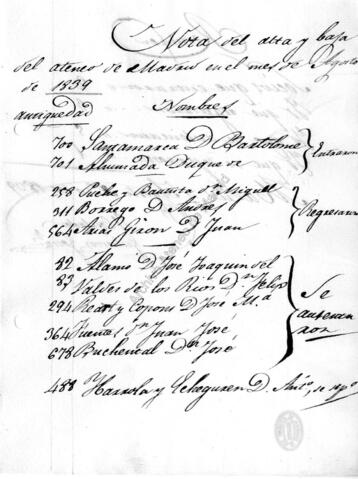 Nota del alta y baja
del ateneo de Madrid en el mes de Agosto
de 1839
antiguedad Nombres
700 Santamarca D Bartolome
701 Ahumada Duque de
Entraron
258 Pucho y Bautista Dn Miguel
311 Borrego D. Andres
564 Arias Giron D Juan
Regresaron
32 Alamo D José Joaquin del
37 Valdes de los Rios Dn Felix
294 Reart y Copons D José M.a
364 Fuentes Dn Juan José
678 Buchental Dn José
Se ausentaron
488 y Echeguren D. Anto. se